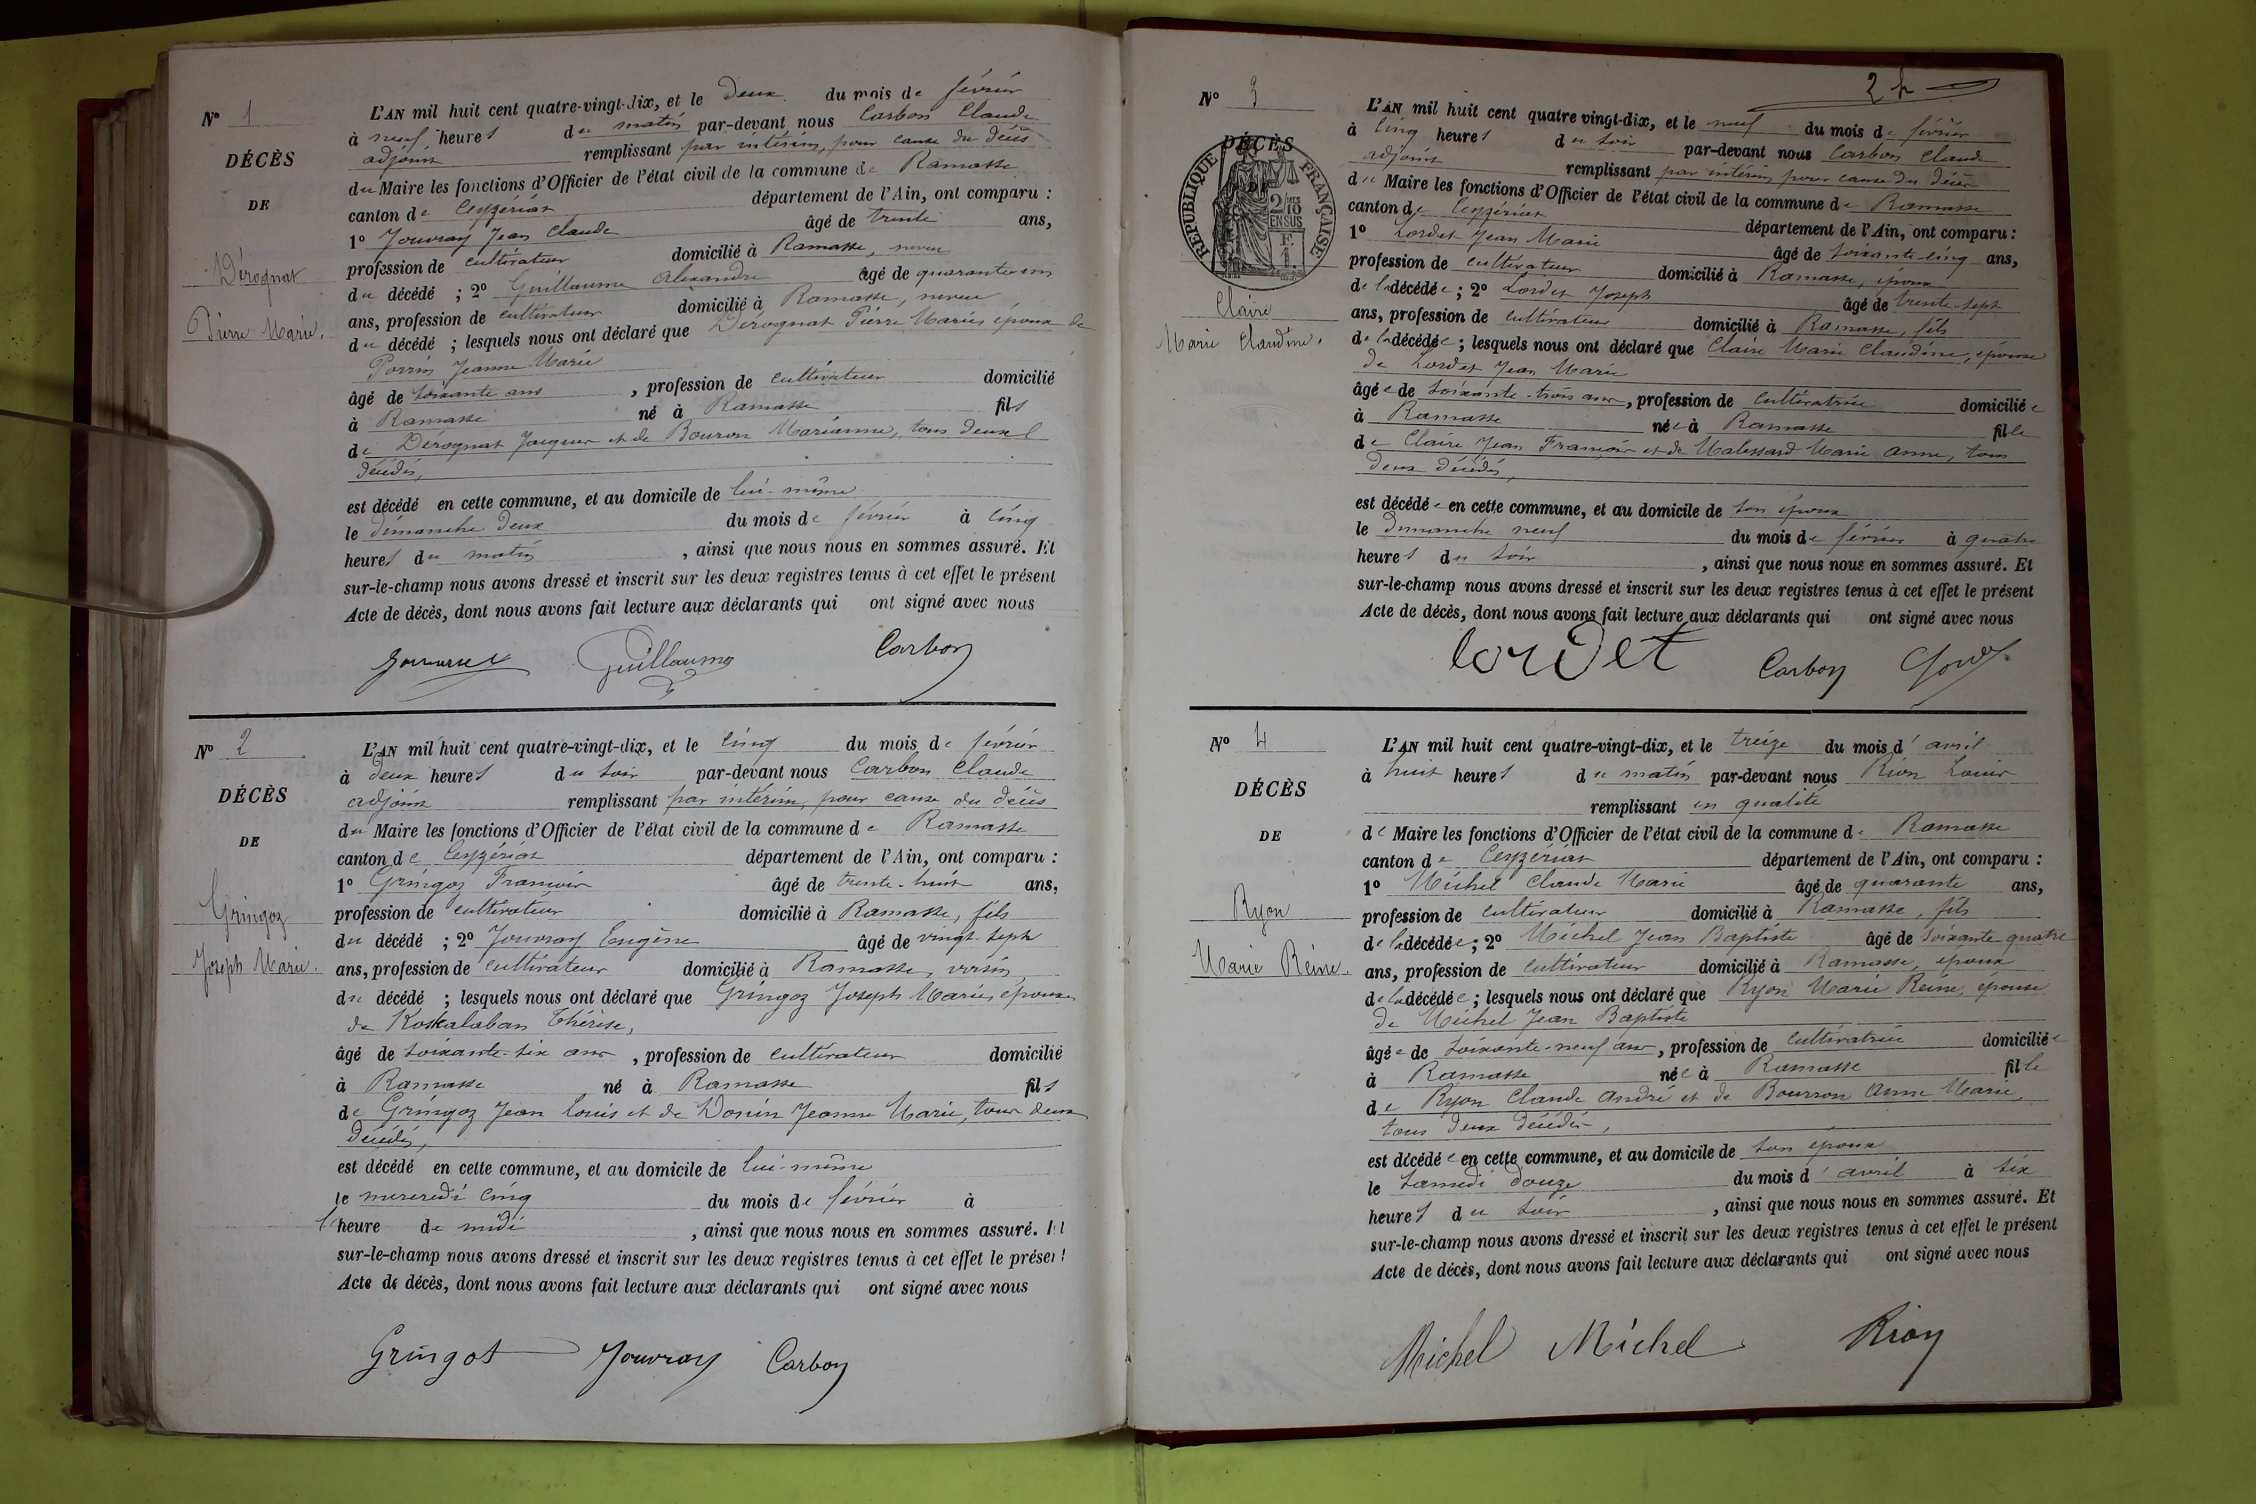 N° 1
DÉCÈS
DE
Dérognat
Pierre Marie.
L'AN mil huit cent quatre-vingt-dix, et le deux du mois de février
à neuf heures du matin par-devant nous Carbon Claude
adjoint remplissant par intérim, pour cause du décès
du Maire les fonctions d'Officier de l'état civil de la commune de Ramasse
canton de Ceyzériat département de l'Ain, ont comparu :
1° Jouvray Jean Claude âgé de trente ans,
profession de cultivateur domicilié à Ramasse, neveu
du décédé ; 2° Guillaume Alexandre âgé de quarante un
ans, profession de cultivateur domicilié à Ramasse, neveu
du décédé ; lesquels nous ont déclaré que Dérognat Pierre Marie, époux de
Perrin Jeanne Marie
âgé de soixante ans , profession de cultivateur domicilié
à Ramasse né à Ramasse fils
de Dérognat Jacques et de Bouron Marianne, tous deux
décédés,
est décédé en cette commune, et au domicile de lui-même
le dimanche deux du mois de février à cinq
heures du matin , ainsi que nous nous en sommes assuré. Et
sur-le-champ nous avons dressé et inscrit sur les deux registres tenus à cet effet le présent
Acte de décès, dont nous avons fait lecture aux déclarants qui ont signé avec nous
Guillaume Carbon
N° 2
DÉCÈS
DE
Gringoz
Joseph Marie.
L'AN mil huit cent quatre-vingt-dix, et le cinq du mois de février
à deux heures du soir par-devant nous Carbon Claude
adjoint remplissant par intérim, pour cause du décès
du Maire les fonctions d'Officier de l'état civil de la commune de Ramasse
canton de Ceyzériat département de l'Ain, ont comparu :
1° Gringoz François âgé de trente-huit ans,
profession de cultivateur domicilié à Ramasse, fils
du décédé ; 2° Jouvray Eugène âgé de vingt-sept
ans, profession de cultivateur domicilié à Ramasse, voisin
du décédé ; lesquels nous ont déclaré que Gringoz Joseph Marie, époux
de Koskalaban Thérèse,
âgé de soixante-six ans , profession de cultivateur domicilié
à Ramasse né à Ramasse fils
de Gringoz Jean Louis et de Donin Jeanne Marie, tous deux
décédés,
est décédé en cette commune, et au domicile de lui-même
le mercredi cinq du mois de février à
l'heure de midi , ainsi que nous nous en sommes assuré. Et
sur-le-champ nous avons dressé et inscrit sur les deux registres tenus à cet effet le présent
Acte de décès, dont nous avons fait lecture aux déclarants qui ont signé avec nous
Gringot Jouvray Carbon
2
N° 3
DÉCÈS
RÉPUBLIQUE FRANÇAISE
2/10
EN SUS
Claire
Marie Claudine.
L'AN mil huit cent quatre vingt-dix, et le neuf du mois de février
à cinq heures du soir par-devant nous Carbon Claude
adjoint remplissant par intérim pour cause du décès
du Maire les fonctions d'Officier de l'état civil de la commune de Ramasse
canton de Ceyzériat département de l'Ain, ont comparu :
1° Cordet Jean Marie âgé de soixante-cinq ans,
profession de cultivateur domicilié à Ramasse, époux
de la décédée ; 2° Cordet Joseph âgé de trente-sept
ans, profession de cultivateur domicilié à Ramasse, fils
de la décédée ; lesquels nous ont déclaré que Claire Marie Claudine, épouse
de Cordet Jean Marie
âgée de soixante-trois ans , profession de cultivatrice domiciliée
à Ramasse née à Ramasse fille
de Claire Jean François et de Malessard Marie Anne, tous
deux décédés,
est décédée en cette commune, et au domicile de son époux
le dimanche neuf du mois de février à quatre
heures du soir , ainsi que nous nous en sommes assuré. Et
sur-le-champ nous avons dressé et inscrit sur les deux registres tenus à cet effet le présent
Acte de décès, dont nous avons fait lecture aux déclarants qui ont signé avec nous
Cordet Carbon
N° 4
DÉCÈS
DE
Ryon
Marie Reine.
L'AN mil huit cent quatre-vingt-dix, et le treize du mois d'avril
à huit heures du matin par-devant nous Rion Louis
remplissant en qualité
de Maire les fonctions d'Officier de l'état civil de la commune de Ramasse
canton de Ceyzériat département de l'Ain, ont comparu :
1° Michel Claude Marie âgé de quarante ans,
profession de cultivateur domicilié à Ramasse, fils
de la décédée ; 2° Michel Jean Baptiste âgé de soixante-quatre
ans, profession de cultivateur domicilié à Ramasse, époux
de la décédée ; lesquels nous ont déclaré que Ryon Marie Reine, épouse
de Michel Jean Baptiste
âgée de soixante-neuf ans , profession de cultivatrice domiciliée
à Ramasse née à Ramasse fille
de Ryon Claude André et de Bourron Anne Marie,
tous deux décédés,
est décédée en cette commune, et au domicile de son époux
le samedi douze du mois d'avril à six
heures du soir , ainsi que nous nous en sommes assuré. Et
sur-le-champ nous avons dressé et inscrit sur les deux registres tenus à cet effet le présent
Acte de décès, dont nous avons fait lecture aux déclarants qui ont signé avec nous
Michel Michel Rion